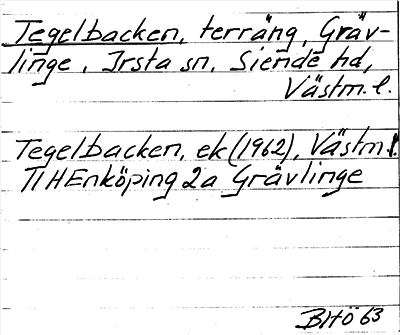 Tegelbacken, terräng, Gräv-
linge, Irsta sn, Siende hd,
Västm. l.
Tegelbacken, ek (1962), Västm l.
11HEnköping 2a Grävlinge
BHÖ 63